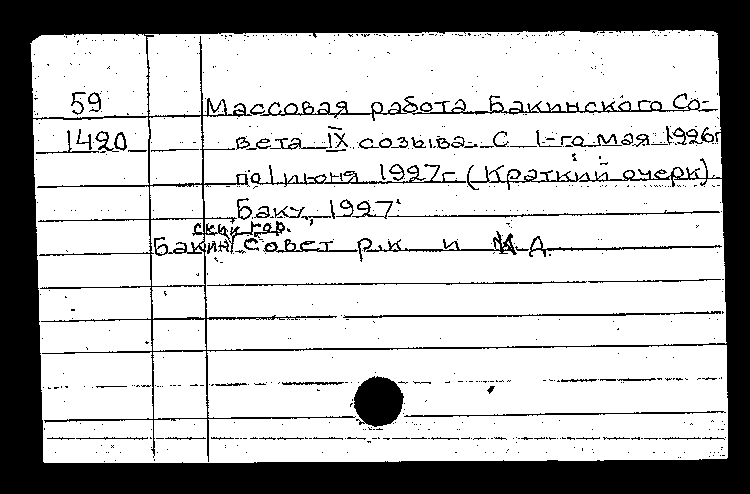 59 Массовая работа Бакинского Со-
1420 вета IX созыва. С 1-го мая 1926г
по 1 июня 1927г (Краткий очерк).
Баку, 1927.
ский гор.
Бакин Совет р.к. и К Д.